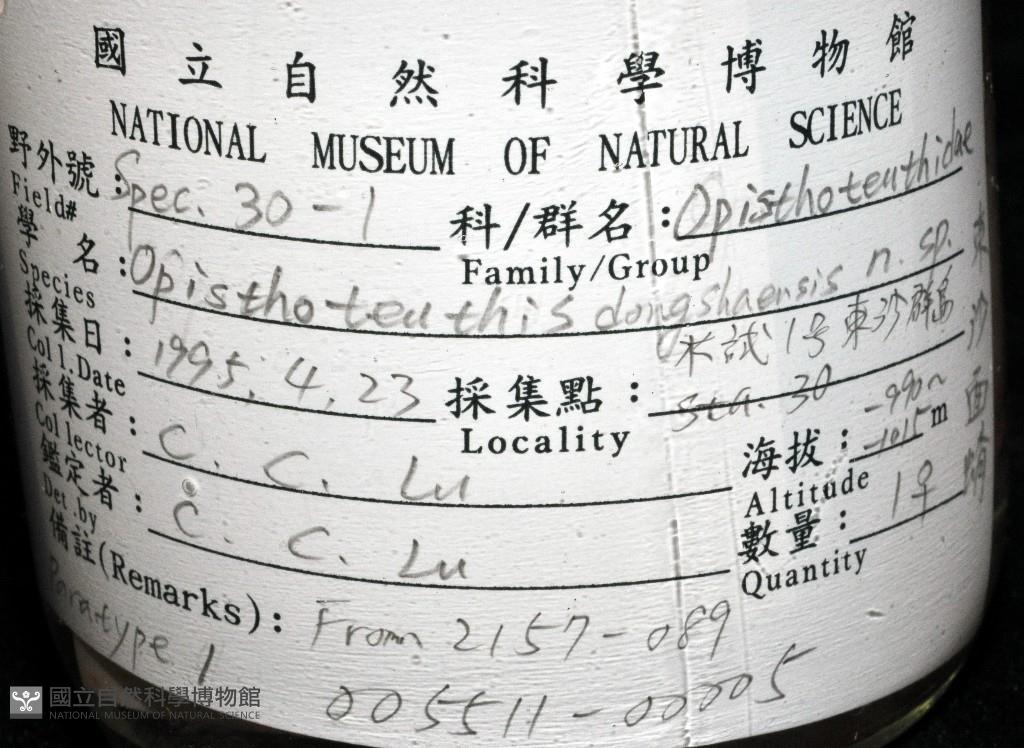 國立自然科學博物館
NATIONAL MUSEUM OF NATURAL SCIENCE
野外號: Spec. 30-1 科/群名: Opisthoteuthidae
Field# Family/Group
學名: Opisthoteuthis dongshaensis n. sp.
Species
水試1号 東沙群島
東沙西南
採集日: 1995. 4. 23 採集點: Sta. 30
Coll.Date Locality
海拔: -990~-1015 m
Altitude
採集者: C. C. Lu
Collector
數量: 1♀
Quantity
鑑定者: C. C. Lu
Det.by
備註(Remarks): From 2157-089
Paratype 1
005511-00005
國立自然科學博物館
NATIONAL MUSEUM OF NATURAL SCIENCE